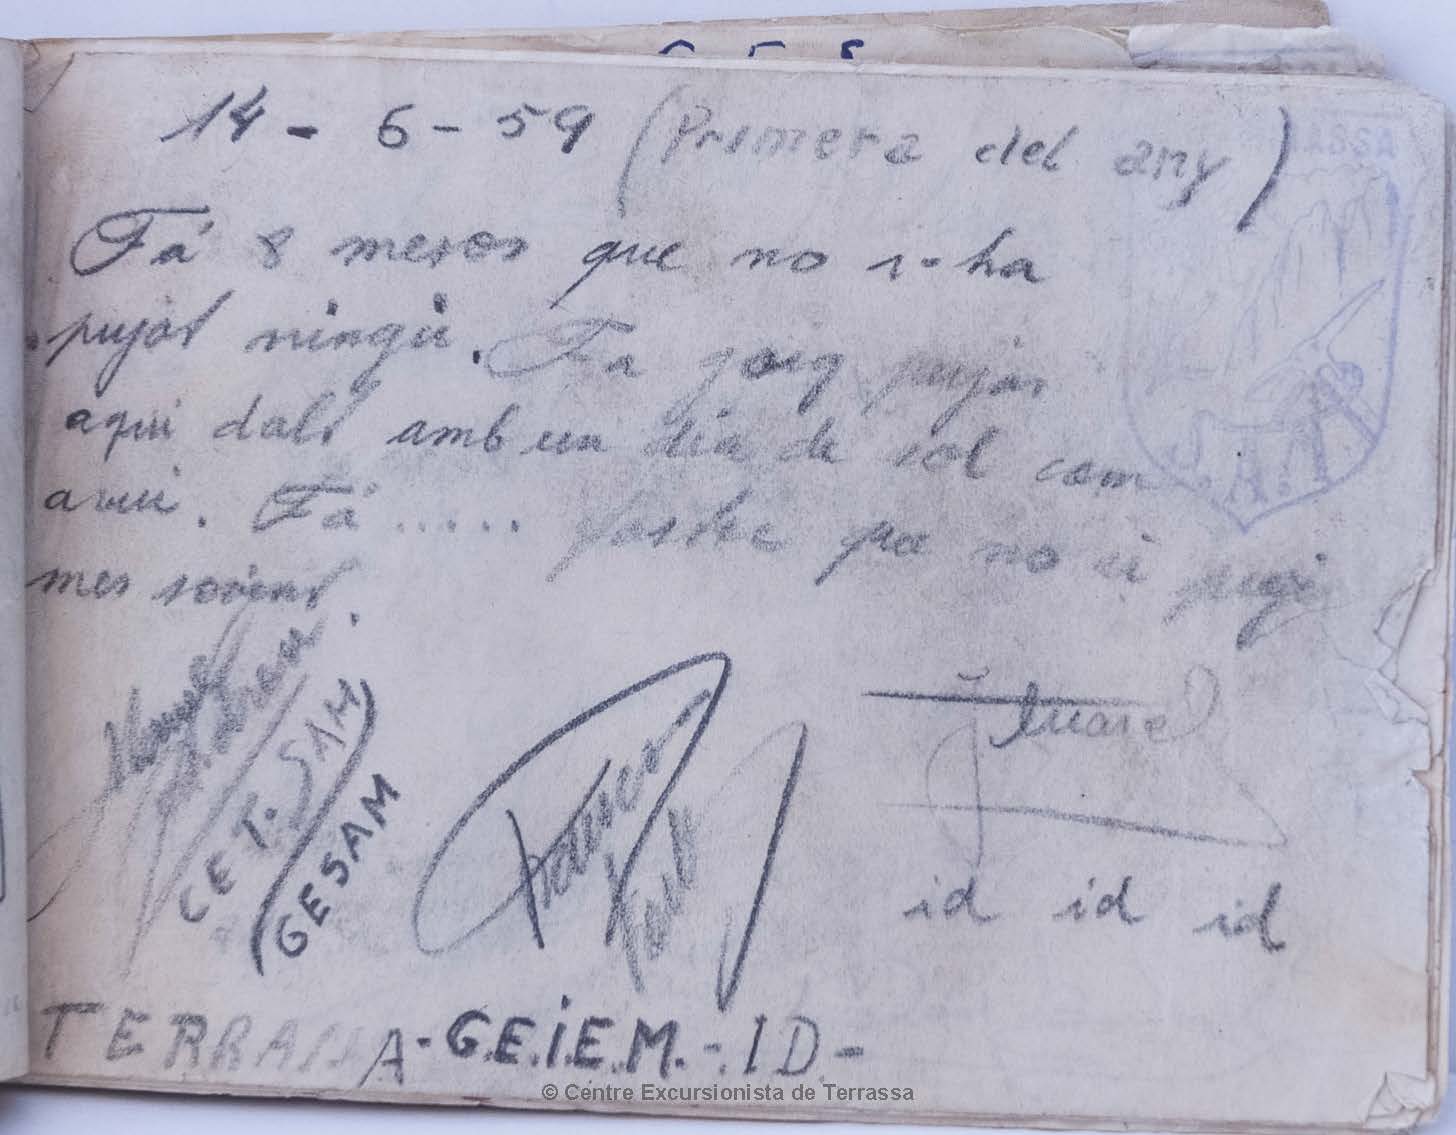 14 - 6 - 59 (Primera del any)
Fá 8 mesos que no s-ha
pujat ningú. Fa goig pujar
aqui dalt amb un dia de sol com
avui. Fá ..... fastic que no ú pugi
mes sovint.
Manuel
CET. SAM
GESAM
Francesc
J. Suarez
id id id
TERRASSA - G.E.i.E.M. - . ID -
© Centre Excursionista de Terrassa